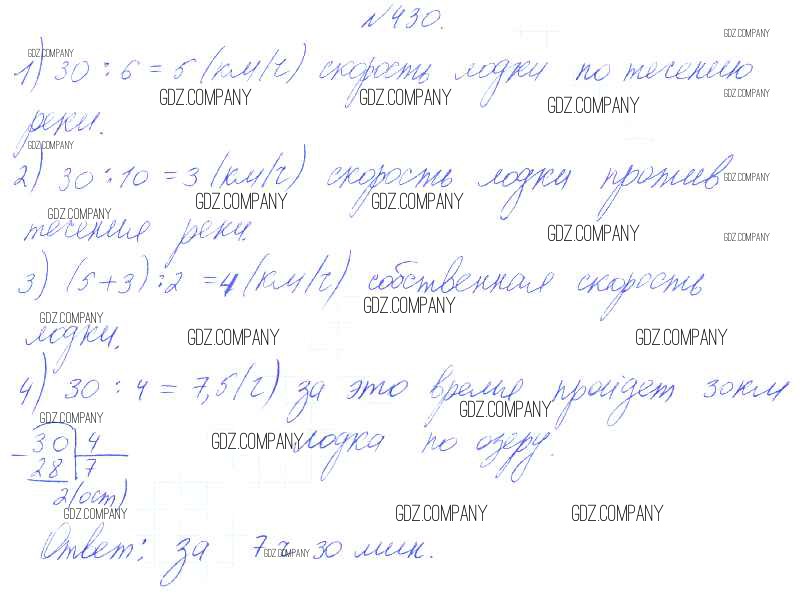 №430.
GDZ.COMPANY
GDZ.COMPANY
1) 30 : 6 = 5 (км/ч) скорость лодки по течению
GDZ.COMPANY GDZ.COMPANY GDZ.COMPANY GDZ.COMPANY
реки.
GDZ.COMPANY
2) 30 : 10 = 3 (км/ч) скорость лодки против
GDZ.COMPANY
GDZ.COMPANY GDZ.COMPANY
GDZ.COMPANY
течения реки.
GDZ.COMPANY GDZ.COMPANY
3) (5+3) : 2 = 4 (км/ч) собственная скорость
GDZ.COMPANY GDZ.COMPANY
лодки.
GDZ.COMPANY GDZ.COMPANY
4) 30 : 4 = 7,5 (ч) за это время пройдет 30км
GDZ.COMPANY GDZ.COMPANY
лодка по озеру.
GDZ.COMPANY
- 30 4
28 7
2 (ост)
GDZ.COMPANY GDZ.COMPANY GDZ.COMPANY
Ответ: за 7 ч 30 мин.
GDZ.COMPANY